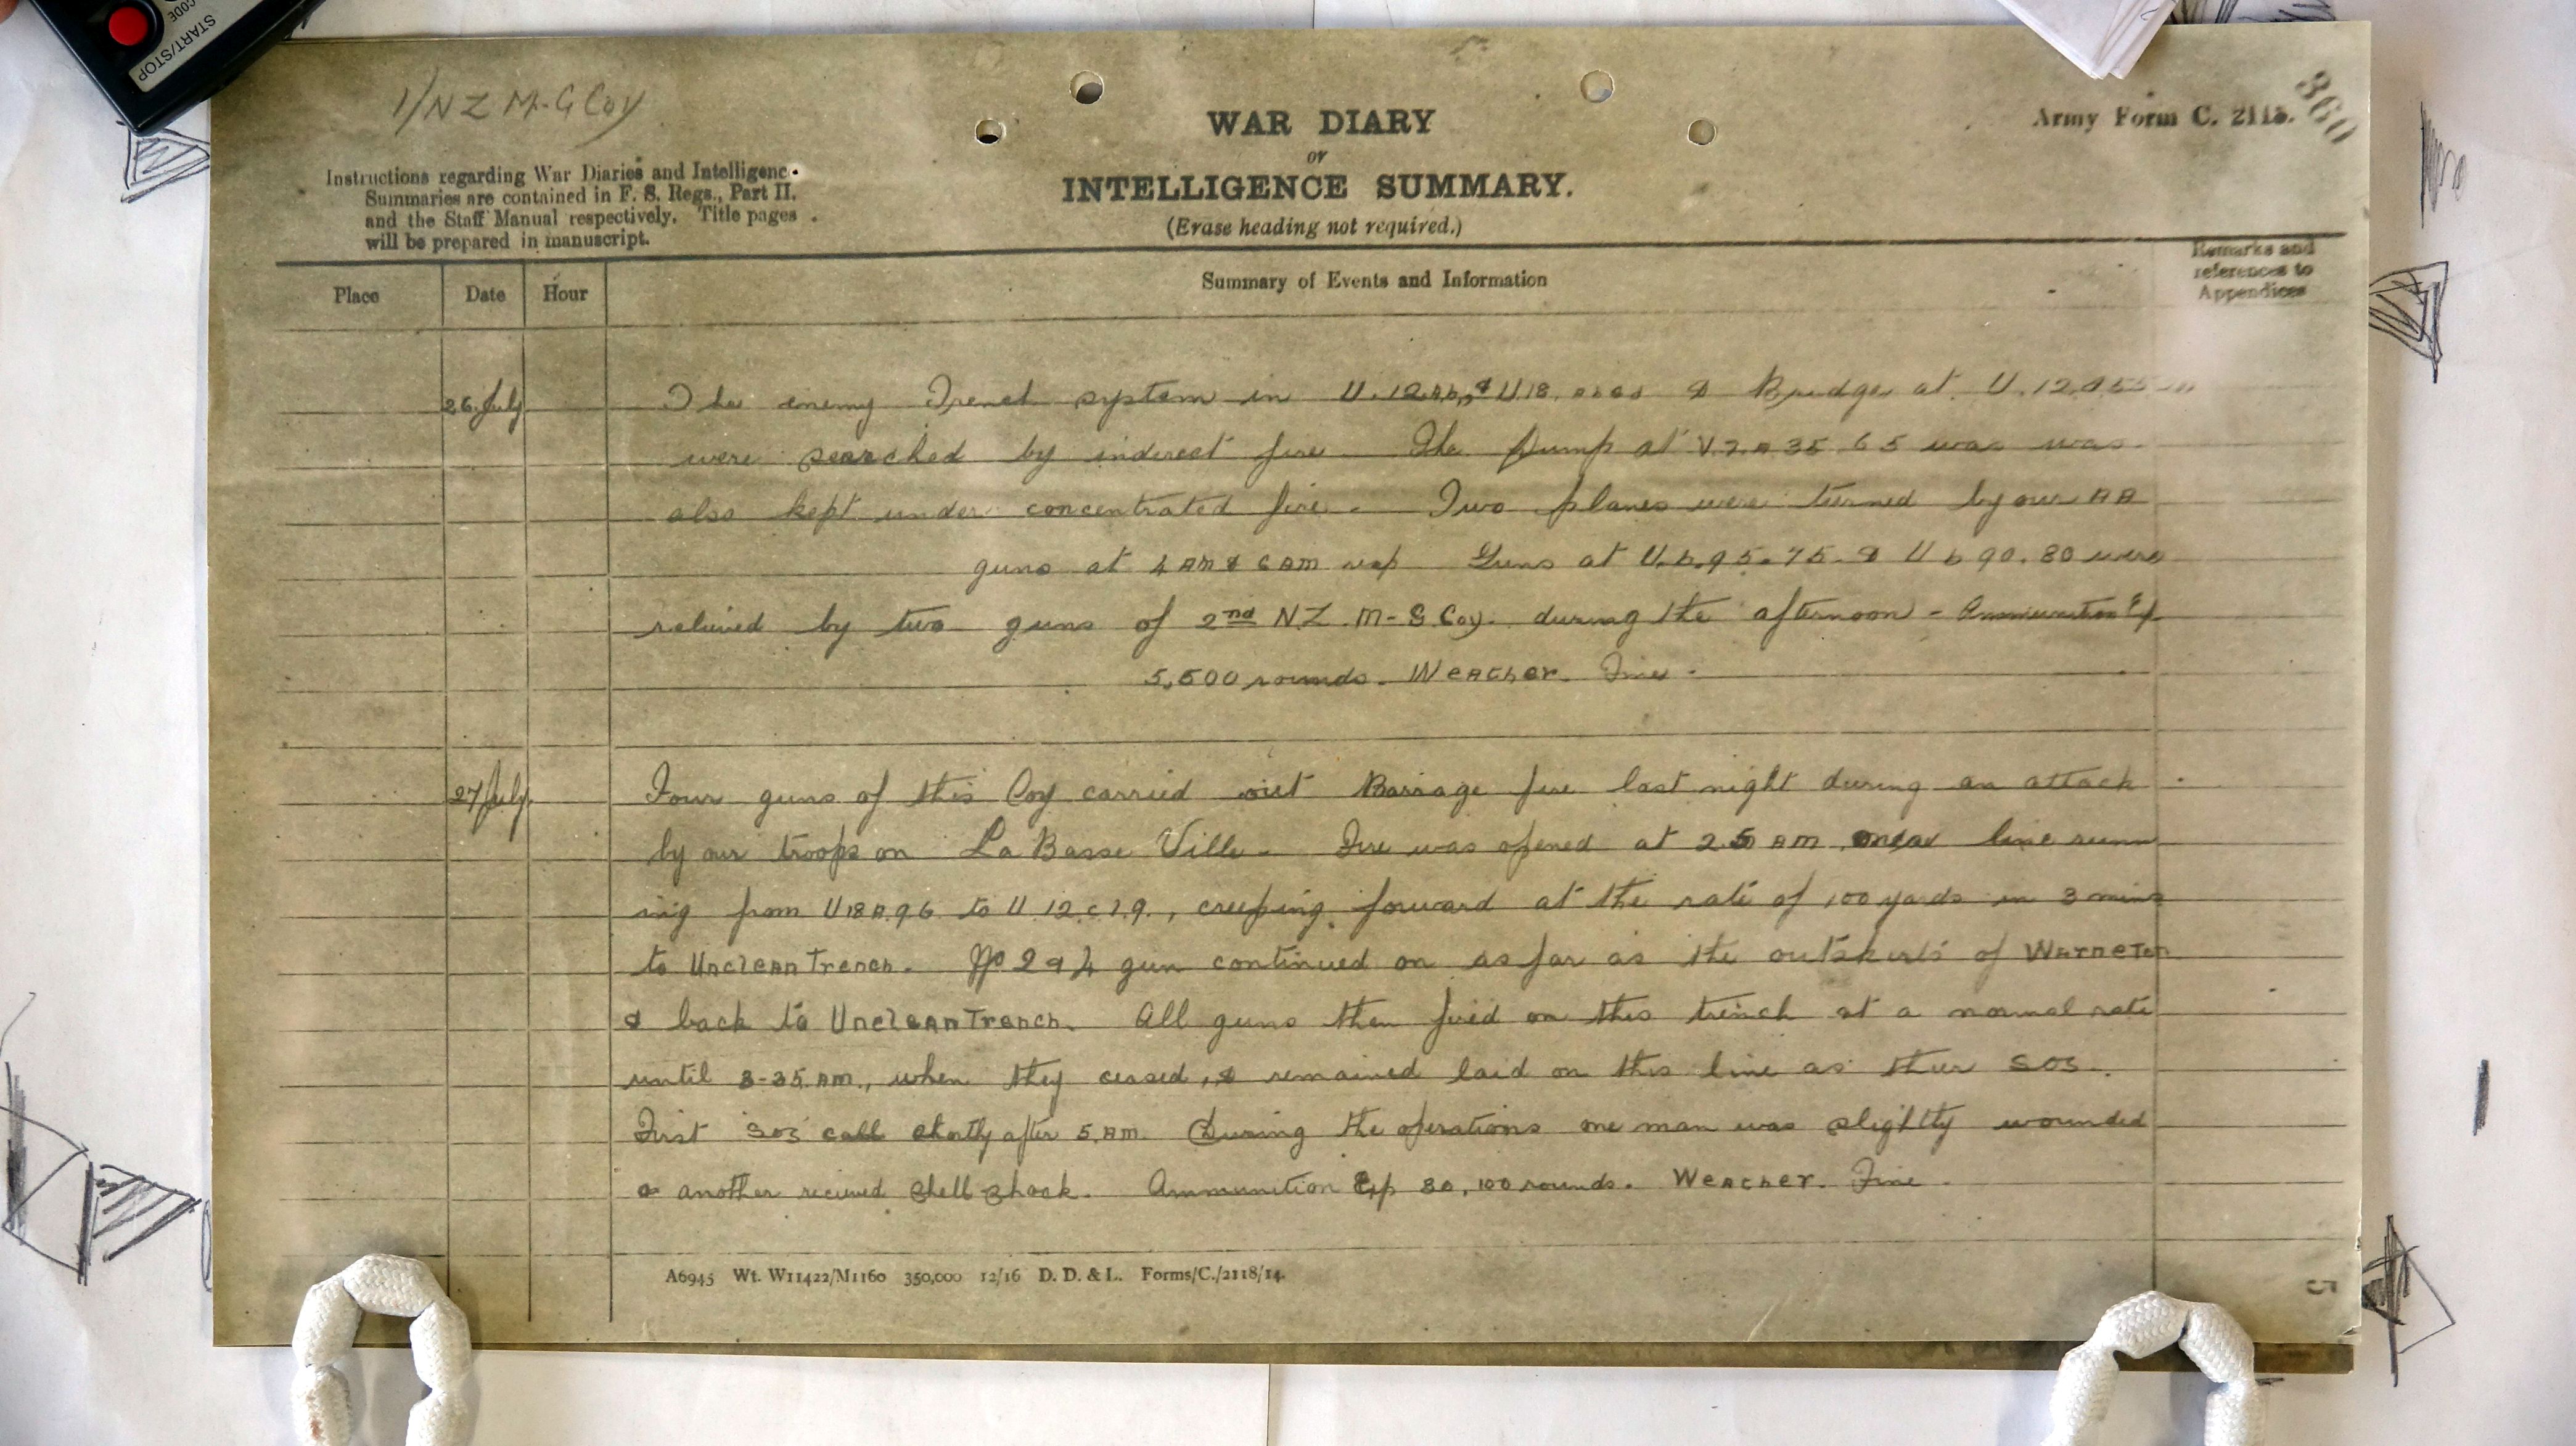 START/STOP
CODE
1/NZ M-G Coy
WAR DIARY
or
INTELLIGENCE SUMMARY.
(Erase heading not required.)
Army Form C. 2118.
360
Instructions regarding War Diaries and Intelligenc
Summaries are contained in F. S. Regs., Part II.
and the Staff Manual respectively. Title pages
will be prepared in manuscript.
Place
Date
Hour
Summary of Events and Information
Remarks and
references to
Appendices
26 July
The enemy Trench system in U.12 & U18 & Bridges at U.12.
were searched by indirect fire. The Dump at V.7.A 35 65 was was
also kept under concentrated fire. Two planes were turned by our AA
guns at 4 AM & 6 AM resp Guns at U.b.95.75 & U b 90.80 were
relieved by two guns of 2nd NZ. M-G Coy. during the afternoon - Ammunition Exp
5,500 rounds. Weather. Fine.
27 July.
Four guns of this Coy carried out Barrage fire last night during an attack
by our troops on La Basse Ville. Fire was opened at AM line runn
ing from U18A.96 to U.12.c.7.9., creeping forward at the rate of 100 yards in 3 mins
to Unclean Trench. No 2 & 4 gun continued on as far as the outskirts of Warneton
& back to Unclean Trench. All guns then fired on this trench at a normal rate
until 3-35 AM., when they ceased, & remained laid on this line as their SOS.
First SOS call shortly after 5 AM. During the operations one man was slightly wounded
& another received shell shock. Ammunition Exp 30,100 rounds. Weather. Fine.
A6945 Wt. W11422/M1160 350,000 12/16 D. D. & L. Forms/C./2118/14.
5